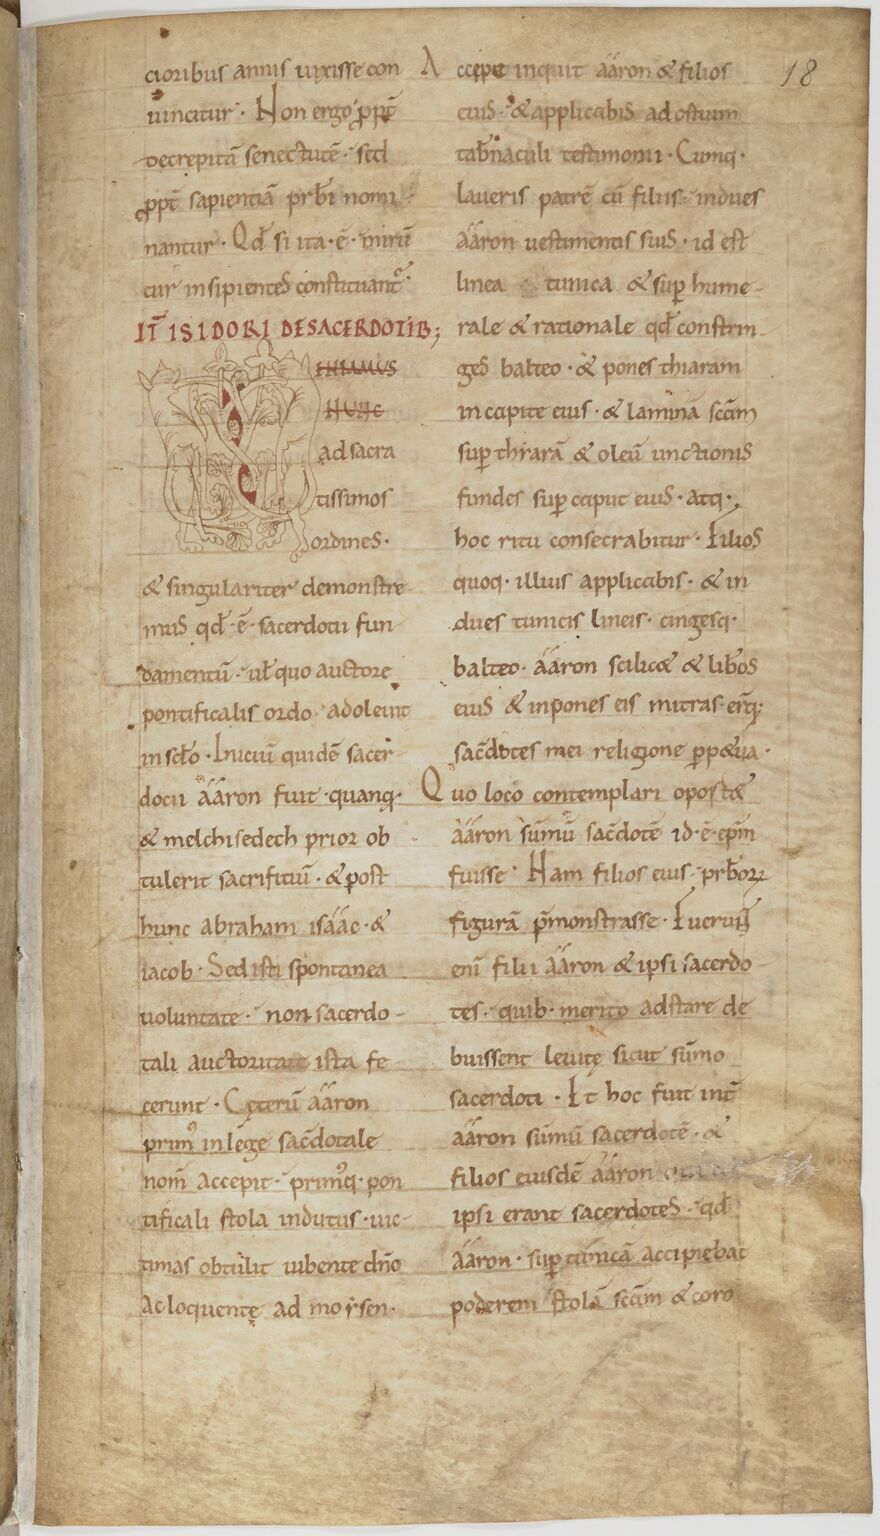 cioribus annis uixisse con
uincitur · Non ergo ꝓpt̄
decrepitā senectutē · sed
ꝓpt̄ sapientiā prb̄i nomi
nantur · Qd̄ si ita · ē · mirū
cur insipientes constituant᷑ ·
IT̄ ISIDORI DE SACERDOTIB;
VENIAMUS
NUNC
ad sacra
tissimos
ordines ·
& singulariter demonstre
mus qd̄ · ē · sacerdotii fun
damentū · ul̄ quo auctore
pontificalis ordo adoleuit
in sc̄lo · Iniciū quidē sacer
docii ááron fuit · quanq̄ ·
& melchisedech prior ob
tulerit sacrifitiū · & post
hunc abraham isáác · &
iacob · Sed isti spontanea
uoluntate · non sacerdo
tali auctoritate ista fe
cerunt · Cęterū ááron
primꝰ in lege sac̄dotale
nom̄ accepit · primꝰq · pon
tificali stola indutus · uic
timas obtulit iubente dn̄o
ac loquentę ad moẏsen ·
Accipe inquit ááron & filios
eius · & applicabis ad ostium
tab̄naculi testimonii · Cumq ·
laueris patrē cū filiis · indues
ááron uestimentis suis · id est
linea tunica & suꝑ hume
rale & rationale qd̄ constrin
ges balteo · & pones thiaram
in capite eius · & laminā sc̄am
suꝑ thiarā & oleū unctionis
fundes suꝑ caput eius · atq ·
hoc ritu consecrabitur · Filios
quoq · illius applicabis · & in
dues tunicis lineis · cingesq ·
balteo · ááron scilic& & lib̄os
eius & inpones eis mitras · er̄q ·
sac̄dotes mei religione ꝑp&ua ·
Quo loco contemplari oport&
ááron sūmū sac̄dotē id · ē · ep̄m
fuisse · Nam filios eius · prb̄oꝝ
figurā p̄monstrasse · Fuerunt
enī filii ááron & ipsi sacerdo
tes · quib · merito adstare de
buissent leuitę sicut sūmo
sacerdoti · Et hoc fuit int̄
ááron sūmū sacerdotē · &
filios eiusdē ááron
ipsi erant sacerdotes · qd̄
ááron · suꝑ tunicā accipiebat
poderem stolā sc̄am & coro
18